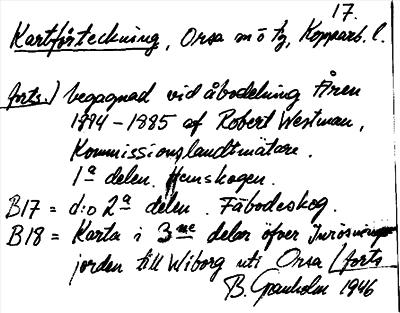 17.
Kartförteckning, Orsa mötg, Kopparb. l.
forts.) begagnad vid åbodelning Åren
1894-1885 af Robert Westman,
Kommissionslandtmätare.
1a delen. Hemskogen.
B17 = d:o 2a delen. Fäbodeskog.
B18 = Karta i 3ne delar öfver Inrösnings
jorden till Wiborg uti Orsa (forts
B. Granholm 1946